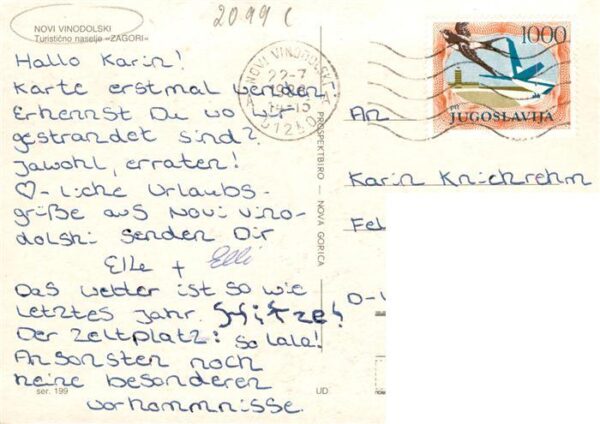 2099 C
NOVI VINODOLSKI
Turistično naselje »ZAGORI«
Hallo Karin!
Karte erstmal wenden!
Erkennst Du wo wir
gestrandet sind?
Jawohl, erraten!
♡-liche Urlaubs-
grüße aus Novi Vino-
dolski senden Dir
Elke + Elli
Das Wetter ist so wie
letztes Jahr. Hitze!
Der Zeltplatz: so lala!
Ansonsten noch
keine besonderen
Vorkommnisse.
ser. 199
UD
PROSPEKTBIRO - NOVA GORICA
NOVI VINODOLSKI
22-7
14-15
51250
1000
JUGOSLAVIJA
An
Karin Knickrehm
Fel
D-